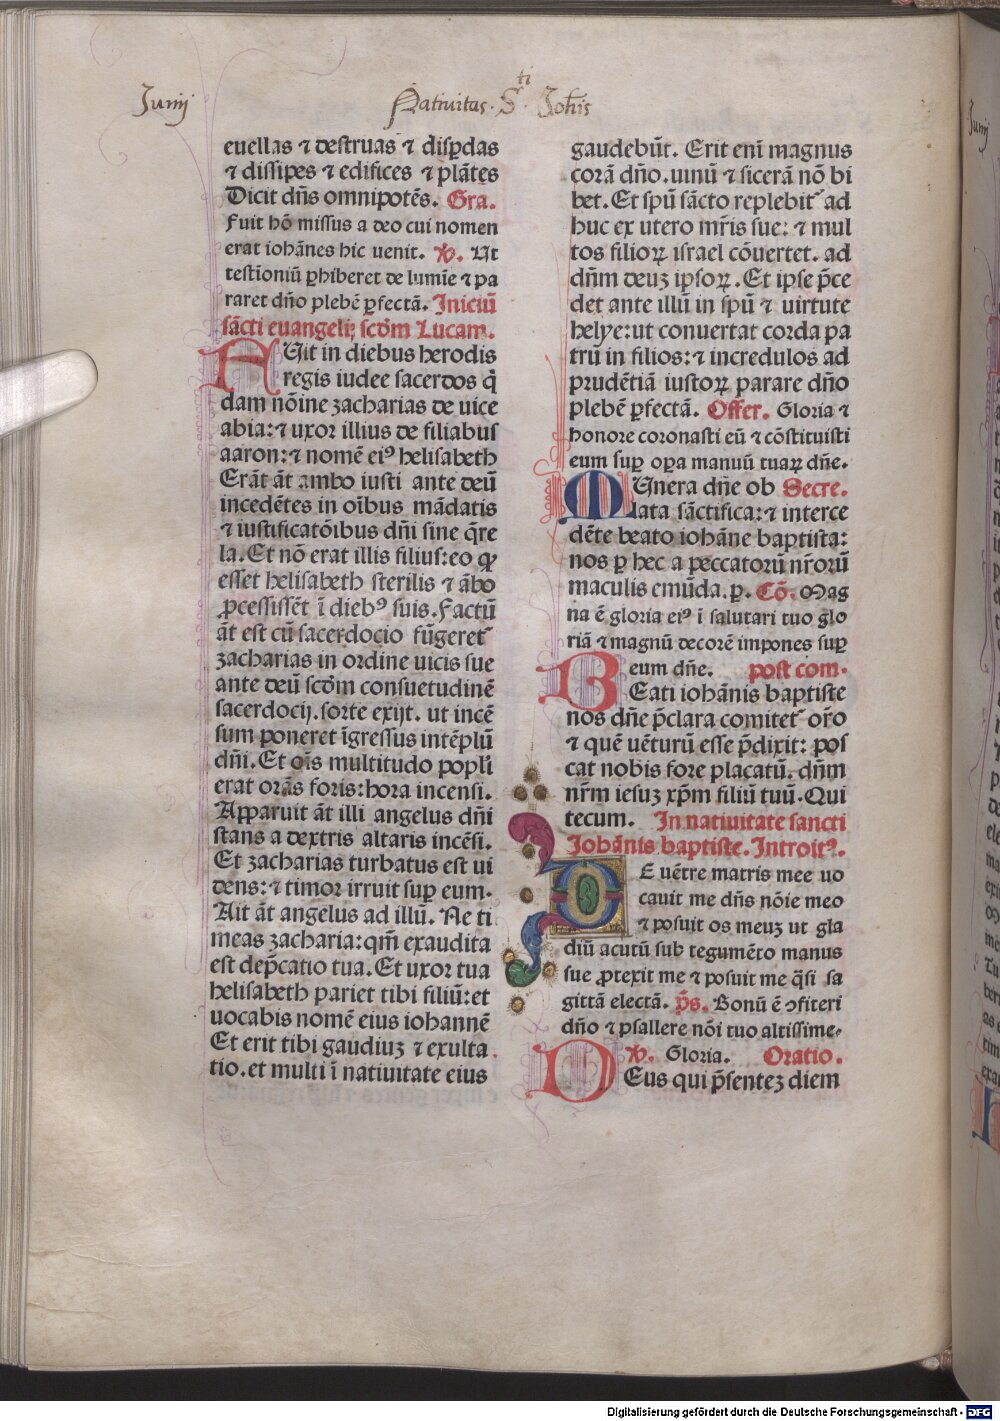 Junij
Natiuitas . S ti . Joh̄is
euellas ⁊ destruas ⁊ disp̄das
⁊ dissipes ⁊ edifices ⁊ plātes
Dicit dn̄s omnipotēs. Gra.
Fuit hō missus a deo cui nomen
erat iohānes hic uenit. ℣. Ut
testīoniū ꝑhiberet de lumīe ⁊ pa
raret dn̄o plebē ꝑfectā. Iniciū
sācti euangelij scd̄m Lucam.
FUit in diebus herodis
regis iudee sacerdos q̄
dam nōine zacharias de uice
abia: ⁊ uxor illius de filiabus
aaron: ⁊ nomē eiꝰ helisabeth
Erāt āt ambo iusti ante deū
incedētes in oībus mādatis
⁊ iustificatōibus dn̄i sine q̄re
la. Et nō erat illis filius: eo ꝙ
esset helisabeth sterilis ⁊ ābo
ꝓcessissēt ī diebꝰ suis. Factū
āt est cū sacerdocio fūgeret᷑
zacharias in ordine uicis sue
ante deū scd̄m consuetudinē
sacerdocij. sorte exijt. ut incē
sum poneret īgressus intēplū
dn̄i. Et oīs multitudo popl̄i
erat orās foris: hora incensi.
Apparuit āt illi angelus dn̄i
stans a dextris altaris incēsi.
Et zacharias turbatus est ui
dens: ⁊ timor irruit suꝑ eum.
Ait āt angelus ad illū. Ne ti
meas zacharia: qm̄ exaudita
est dep̄catio tua. Et uxor tua
helisabeth pariet tibi filiū: et
uocabis nomē eius iohannē
Et erit tibi gaudiuꝫ ⁊ exulta
tio. et multi ī natiuitate eius
gaudebūt. Erit enī magnus
corā dn̄o. uinū ⁊ sicerā nō bi
bet. Et spū sācto replebit᷑ ad
huc ex utero mr̄is sue: ⁊ mul
tos filioꝝ israel cōuertet. ad
dn̄m deuꝫ ipsoꝝ. Et ipse p̄ce
det ante illū in spū ⁊ uirtute
helye: ut conuertat corda pa
trū in filios: ⁊ incredulos ad
prudētiā iustoꝝ parare dn̄o
plebē ꝑfectā. Offer. Gloria ⁊
honore coronasti eū ⁊ cōstituisti
eum suꝑ oꝑa manuū tuaꝝ dn̄e.
MUnera dn̄e ob Secre.
lata sāctifica: ⁊ interce
dēte beato iohāne baptista:
nos ꝑ hec a peccatorū nr̄orū
maculis emūda. ꝑ. Cō. Mag
na ē gloria eiꝰ ī salutari tuo glo
riā ⁊ magnū decorē impones suꝑ
eum dn̄e. post com.
BEati iohānis baptiste
nos dn̄e p̄clara comitet᷑ or̄o
⁊ quē uēturū esse p̄dixit: pos
cat nobis fore placatū. dn̄m
nr̄m iesuꝫ xp̄m filiū tuū. Qui
tecum. In natiuitate sancti
Johānis baptiste. Introitꝰ.
DE uētre matris mee uo
cauit me dn̄s nōie meo
⁊ posuit os meuꝫ ut gla
diū acutū sub tegumēto manus
sue ꝓtexit me ⁊ posuit me q̄si sa
gittā electā. p̄s. Bonū ē ꝯfiteri
dn̄o ⁊ psallere nōi tuo altissime.
℣. Gloria. Oratio.
DEus qui p̄senteꝫ diem
Junij
Digitalisierung gefördert durch die Deutsche Forschungsgemeinschaft - DFG